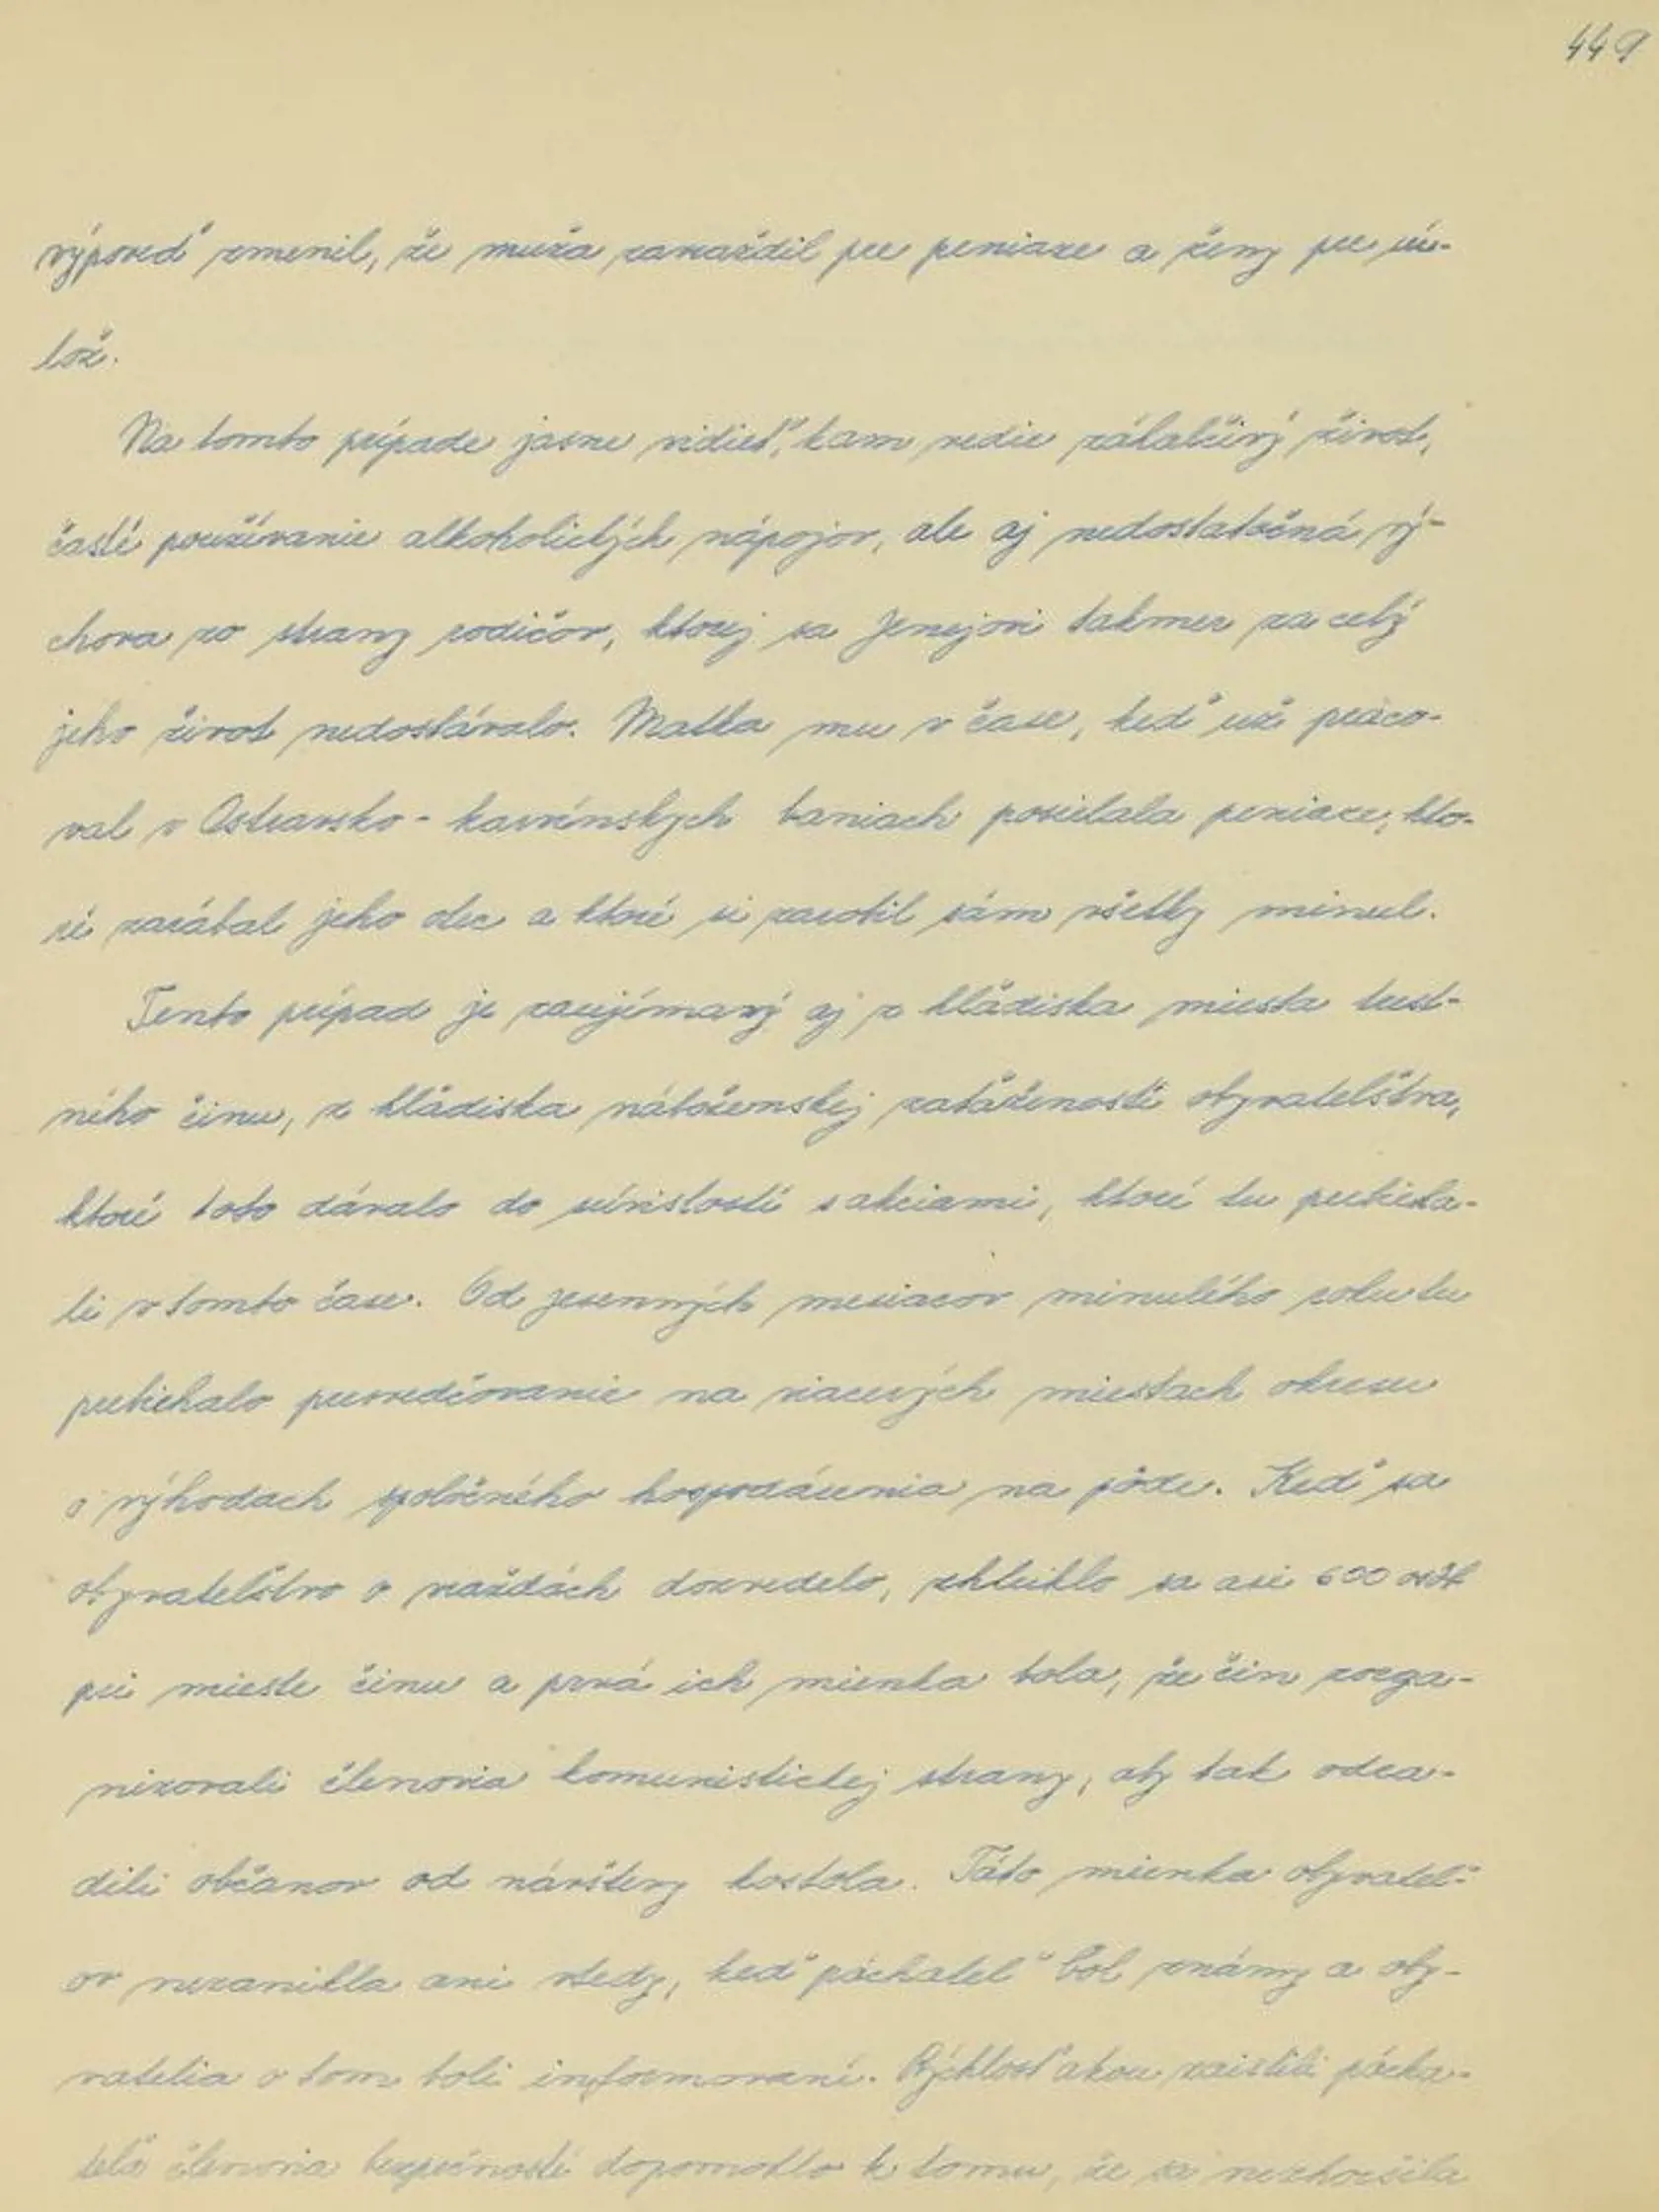 449
výpoveď zmenil, že muža zavraždil pre peniaze a ženy pre
lož.
Na tomto prípade jasne vidieť, kam vedie záhalčivý život,
časté používanie alkoholických nápojov, ale aj nedostatočná vý-
chova zo strany rodičov, ktorej sa Jenejovi takmer za celý
jeho život nedostávalo. Matka mu v čase, keď už praco-
val v Ostravsko-karvínskych baniach posielala peniaze, kto-
ré zarábal jeho otec a ktoré si zarobil sám všetky minul.
Tento prípad je zaujímavý aj z hľadiska miesta trest-
ného činu, z hľadiska náboženskej zaťaženosti obyvateľstva,
ktoré toto dávalo do súvislosti s akciami, ktoré tu prebieha-
li v tomto čase. Od jesenných mesiacov minulého roku tu
prebiehalo presvedčovanie na viacerých miestach okresu
o výhodach spoločného hospodárenia na pôde. Keď sa
obyvateľstvo o vraždách dozvedelo, zhluklo sa asi 600 osôb
pri mieste činu a prvá ich mienka bola, že čin zorga-
nizovali členovia komunistickej strany, aby tak odra-
dili občanov od návštevy kostola. Táto mienka obyvateľ-
ov nezanikla ani vtedy, keď páchateľ bol známy a oby-
vatelia o tom boli informovaní. Rýchlosť akou zaistili pácha-
teľa členovia bezpečnosti dopomohlo k tomu, že sa nezhoršila